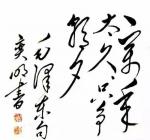 一万年
太久只争
朝夕
毛泽东句
奕明书